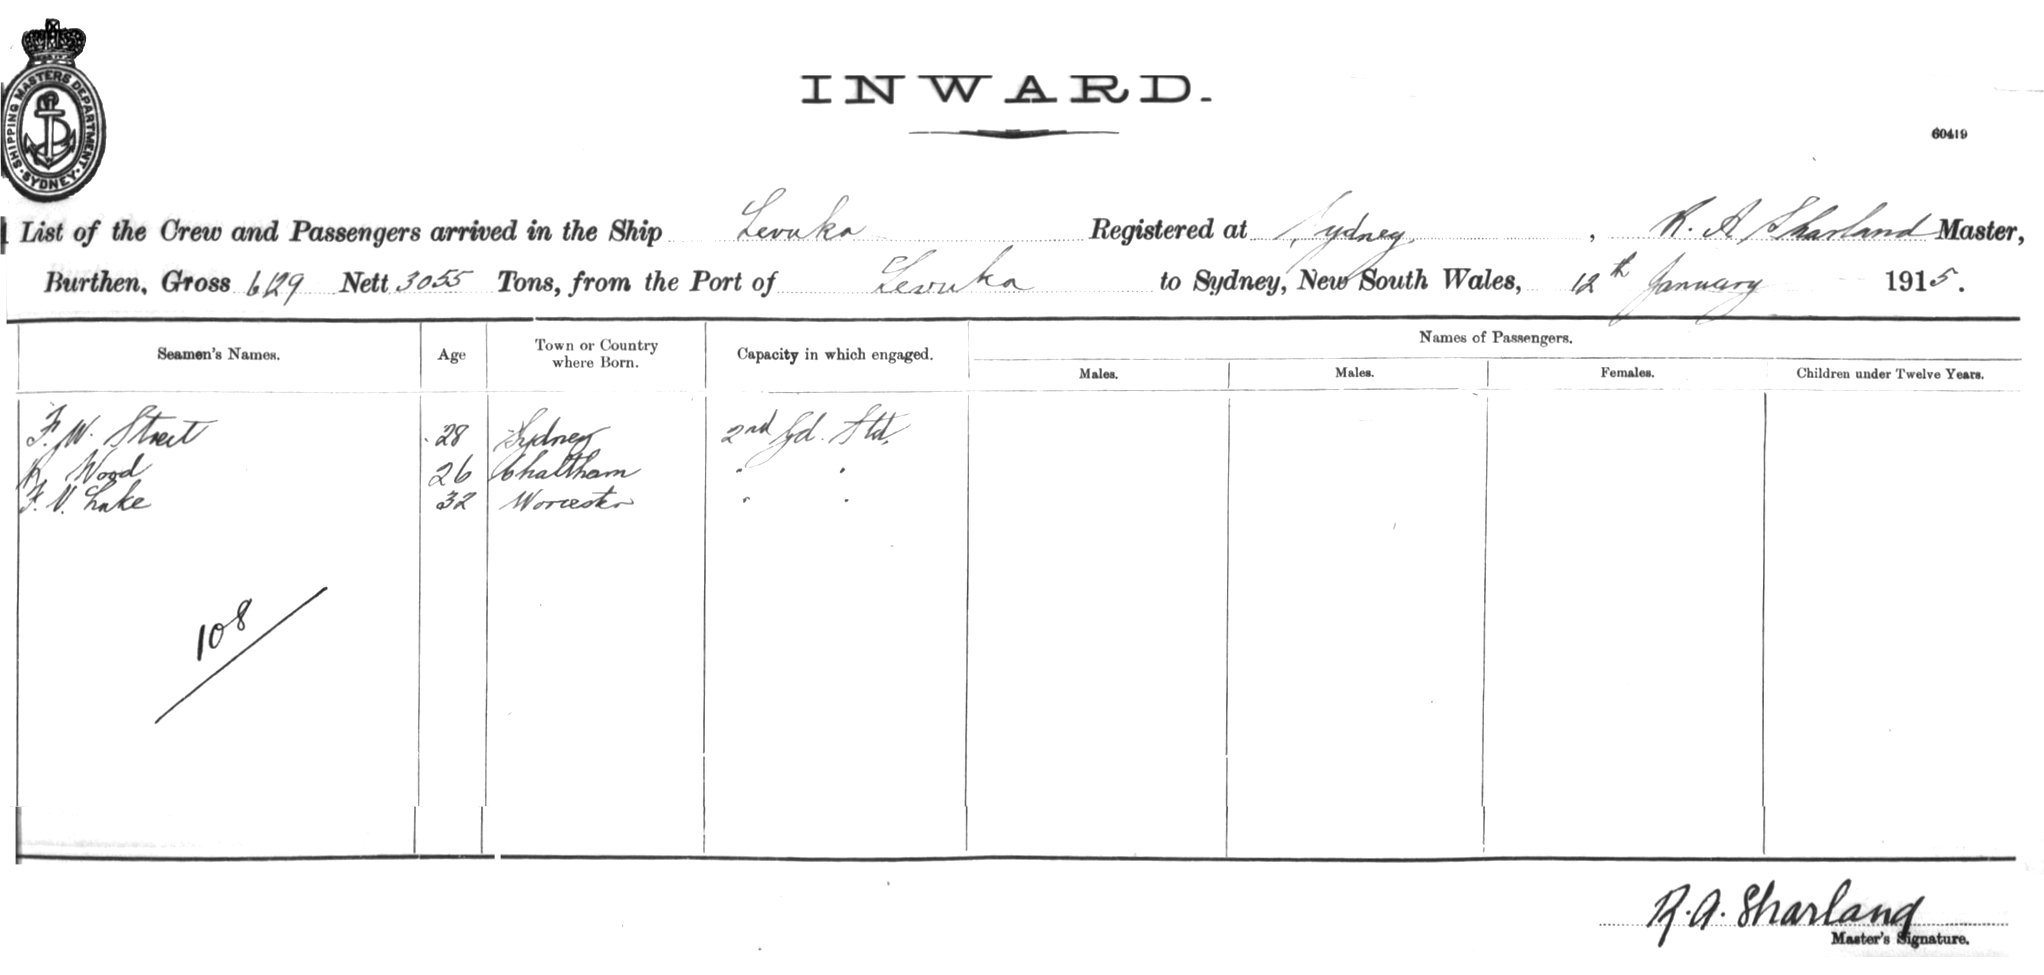 SHIPPING MASTERS DEPARTMENT. SYDNEY.
INWARD.
60419
List of the Crew and Passengers arrived in the Ship Levuka Registered at Sydney, R. A Sharland Master,
Burthen, Gross 6129 Nett 3055 Tons, from the Port of Levuka to Sydney, New South Wales, 12th January 1915.
Seamen's Names. Age Town or Country where Born. Capacity in which engaged. Names of Passengers.
Males. Males. Females. Children under Twelve Years.
F. W. Street 28 Sydney 2nd Gd. Std.
R Wood 26 Chaltham " "
F. V. Lake 32 Worcester " "
108
R. A. Sharland
Master's Signature.